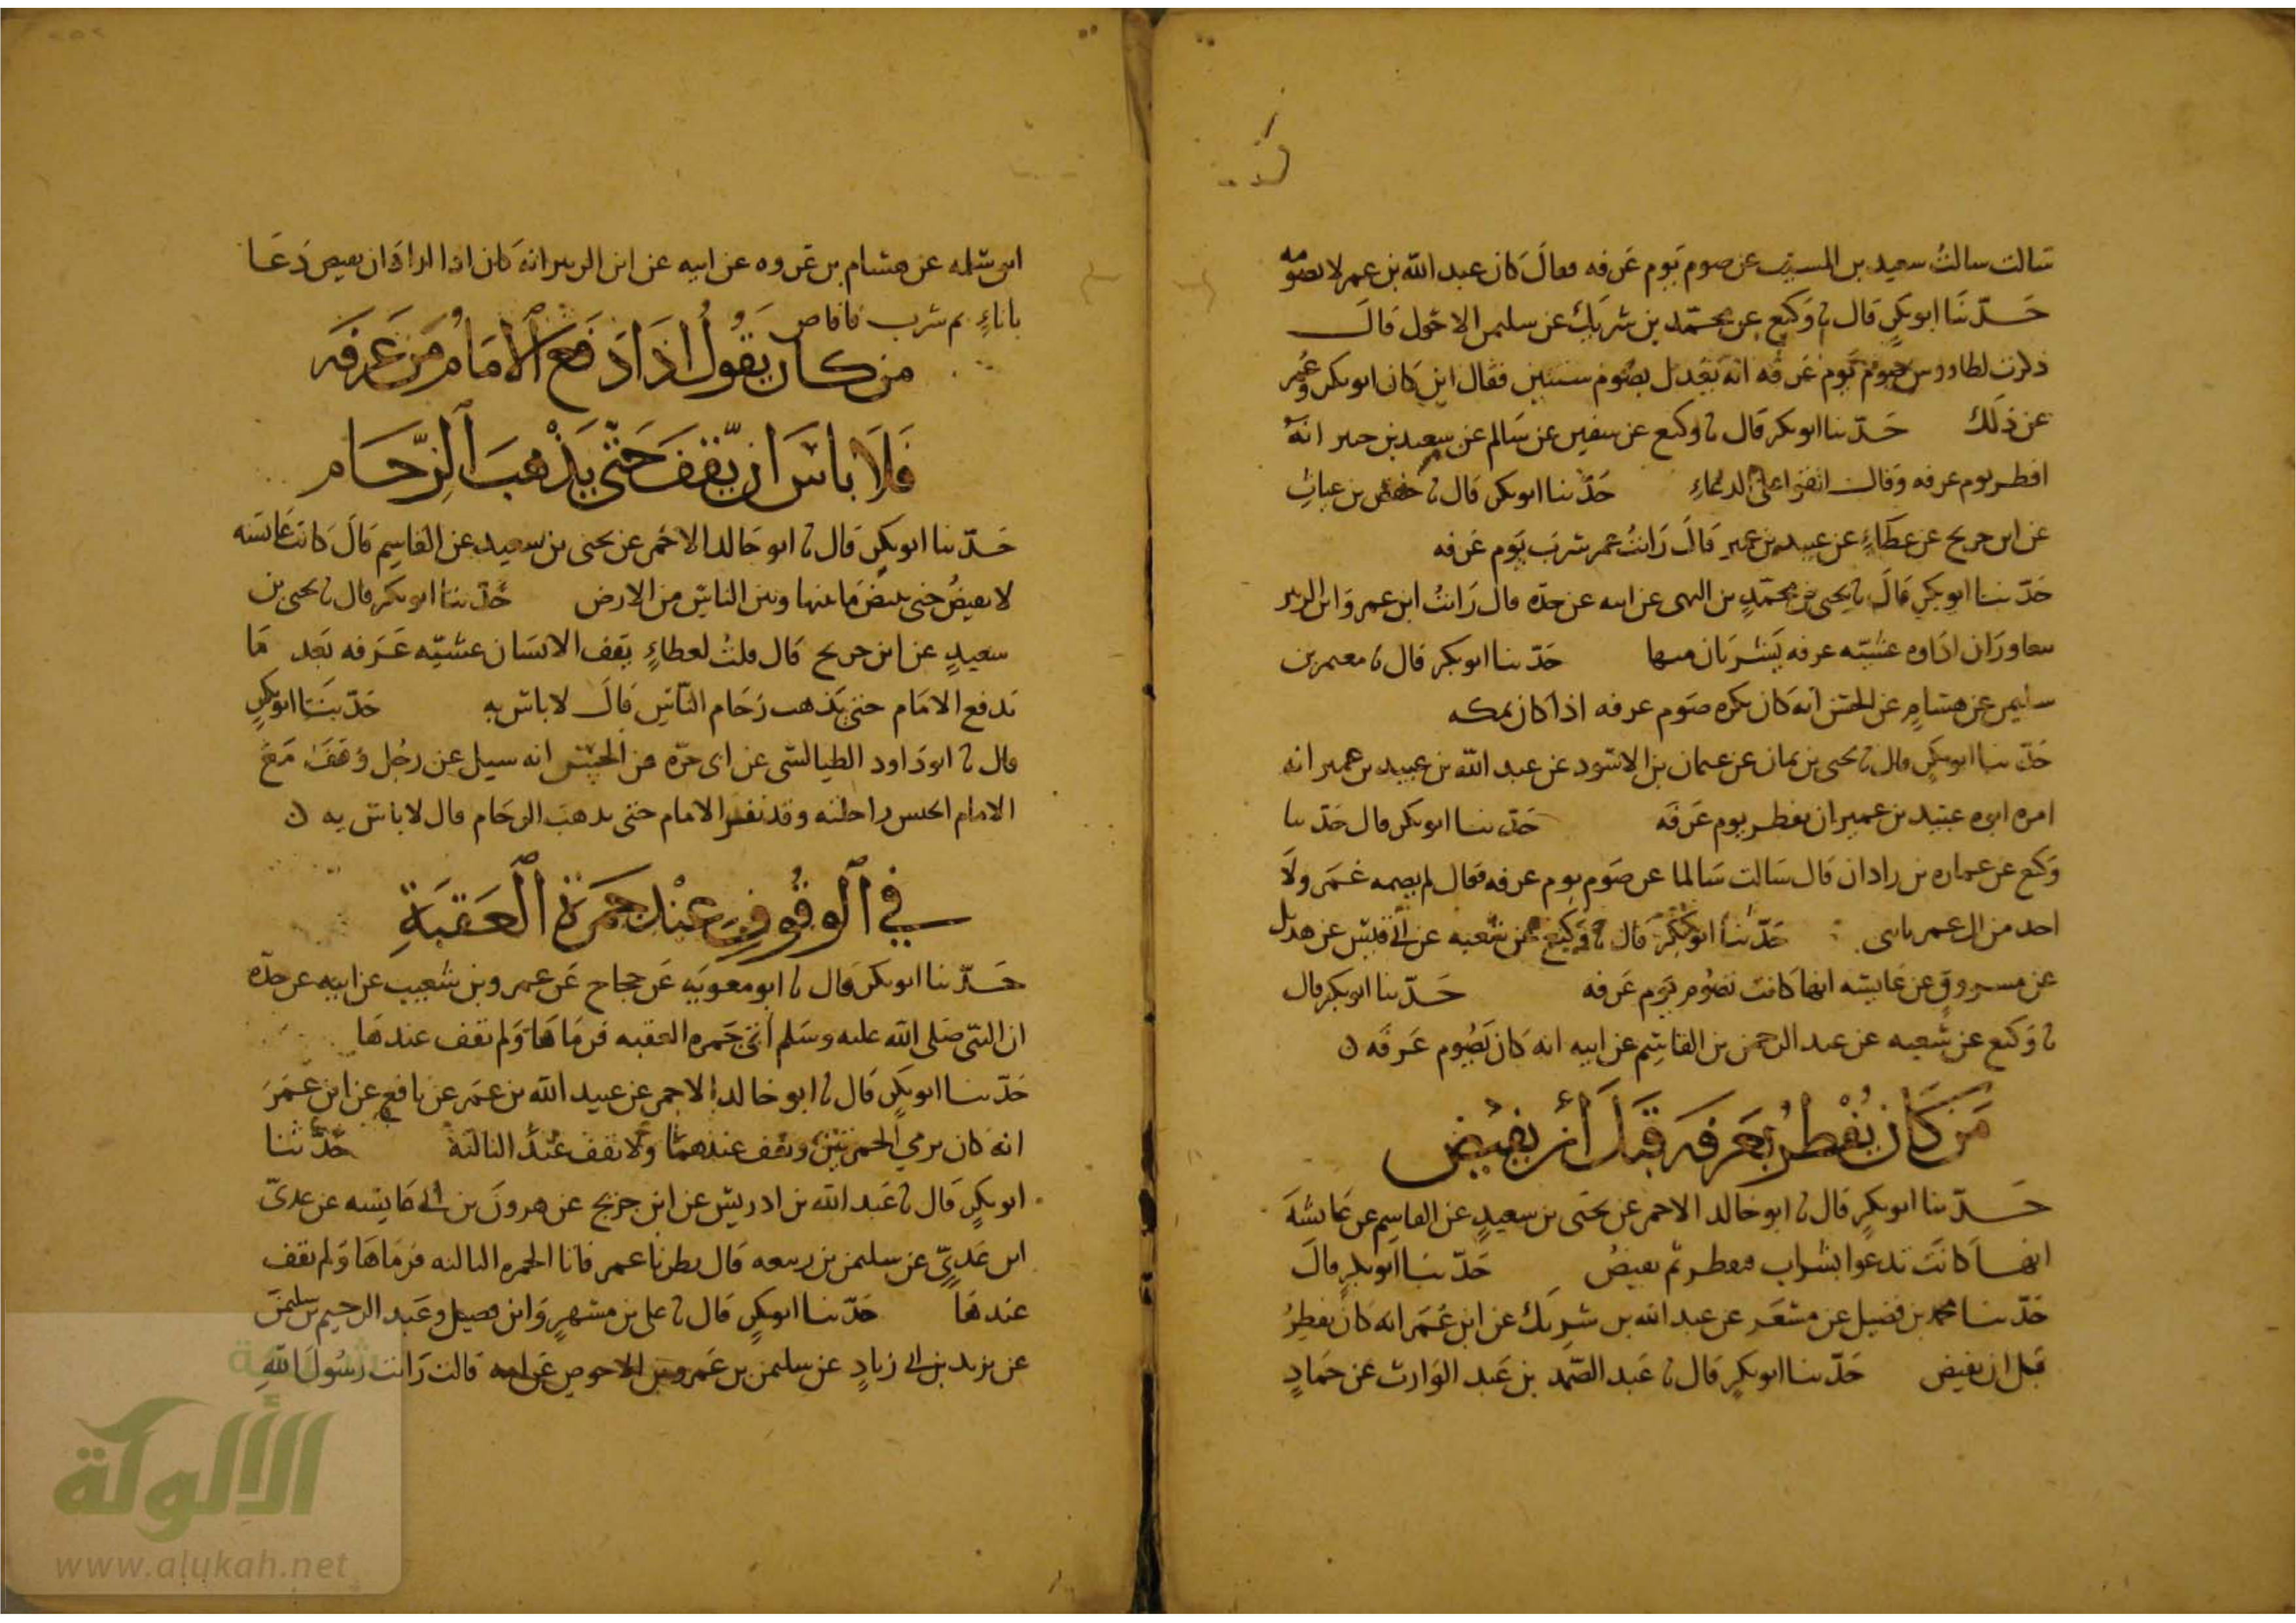 سالت سالتُ سعيد بن المسيب عن صوم يَوم عَرفه فقالَ كان عبد الله بن عمر لا يصومه
حَدّثنَا ابو بكرٍ قال نا وَكيع عن محمّد بن شريك عن سليمن الاحول قالَ
ذكرت لطاووس صوم يَوم عَرفه انه يَعْدل بصَوم سنتين فقال اين كان ابو بكر وعُمر
عن ذلك حَدّثنا ابو بكر قال نا وكيع عن سفين عن سَالم عن سعيد بن جبير انهُ
افطر يوم عرفه وقال اتقوا على الدعاءِ حَدّثنا ابو بكر قال نا حفص بن غياث
عن ابن جريج عن عطاءٍ عن عبيد بن عمير قالَ رَايتُ عمر شربَ يَوم عَرفه
حَدّثنا ابو بكرٍ قالَ نا يحيى بن محمّدٍ بن عن ابيه عن جدّه قال رَايتُ ابن عمر وَابن الزبير
يتعاوران اداوه عشيّه عرفه يَشربَان منها حَدّثنا ابو بكر قال نا معتمر بن
سليمن عن هشامٍ عن الحسن انه كان يكره صَوم عرفه اذا كان بمكه
حَدّثنا ابو بكرٍ قال نا يحيى بن يمان عن عثمان بن الاسَود عن عبد الله بن عبيد بن عمير انه
امره ابوه عبَيد بن عمير ان يفطر يوم عَرفَه حَدّثنا ابو بكر قال حَدّثنا
وَكيع عن عماره بن زاذان قال سَالت سَالما عن صَوم يوم عرفه فقال لم يصمه عُمَر ولَا
احد من ال عمر يا بني حَدّثنا ابو بكر قال نا وَكيع عن شعبه عن ابي قيس عن هذيل
عن مسروقٍ عن عَايشه انها كانت تصُوم يَوم عَرفه حَدّثنا ابو بكر قال
نا وَكيع عن شعبه عن عبد الرحمن بن القاسِم عن ابيه انه كان يَصُوم عَرفَه ن
مَن كَان يُفْطِر بعَرفه قَبلَ أن يفيض
حَدّثنا ابو بكرٍ قال نا ابو خالد الاحمر عن يحَيى بن سعيدٍ عن القاسِم عن عَايشهَ
انها كانت تدعوا بشراب فتفطر ثم تفيضُ حَدّثنا ابو بكرٍ قالَ
حَدّثنا محمد بن فضيل عن مسْعَر عن عبد الله بن شريك عن ابن عُمَر انه كان يفطِرُ
قبل ان يفيض حَدّثنا ابو بكرٍ قال نا عَبد الصّمد بن عَبد الوَارث عن حمَادٍ
ابن سَلمه عن هشام بن عَروه عن ابيه عن ابن الزبير انه كان اذا اراد ان يفيض دَعَا
باناءٍ ثم شرب فافاض
من كان يَقُولُ اذَا دَفَعَ الامَامُ مِن عَرفَه
فَلَا باسَ ان يّقفَ حَتّى يَذْهبَ الزّحَام
حَدّثنا ابو بكرٍ قال نا ابو خَالد الاحمَر عن يحيى بن سعيد عن القاسِم قالَ كانت عَايشَه
لا تفيضُ حتى يبيض مَا بينها وبين الناس من الارض حَدّثنا ابو بكر قال نا يحيى بن
سعيدٍ عن ابن جريج قال قلتُ لعطاءٍ يَقف الانسَان عشيّه عَرفه بَعد مَا
يَدفع الامَام حتى يَذهب زحَام النّاس قالَ لا باس به حَدّثنا ابو بكرٍ
قال نا ابو دَاود الطيالسي عن ابي حرّه عن الحسَن انه سيل عن رجُل وَقفَ مَعَ
الامام احبس راحلته وقد نفر الامام حتى يذهب الزحَام قال لا باس به ن
في الوقُوفِ عنْد جَمرَة العَقبَةِ
حَدّثنا ابو بكر قال نا ابو معوية عَن حجاج عَن عمرو بن شعيب عن ابيه عن جدّه
ان النبي صَلى الله عليه وسَلم أتى جَمره العقبه فرمَاهَا وَلم يقف عندهَا
حَدّثنا ابو بكرٍ قال نا ابو خالد الاحمر عن عبيد الله بن عمَر عن نافع عن ابن عمَرَ
انه كان يرمي الجمرتين ويقف عندهمَا ولا يقف عند الثالثة حَدّثنا
ابو بكرٍ قال نا عَبد الله بن ادريس عن ابن جريج عن هرونَ بن ابي عايشه عن عديّ
ابن عَديّ عن سلمن بن ربيعه قال نظرنا عمر فاتا الجمره الثالثه فرمَاهَا وَلم يقف
عندهَا حَدّثنا ابو بكرٍ قال نا علي بن مسْهرٍ وَابن فضيل وعَبد الرحيم بن سليمن
عن يزيد بن ابي زيادٍ عن سليمن بن عَمرو بن الاحوص عَن امه قالت رَايت رَسُولَ اللهِ
الألوكة
www.alukah.net